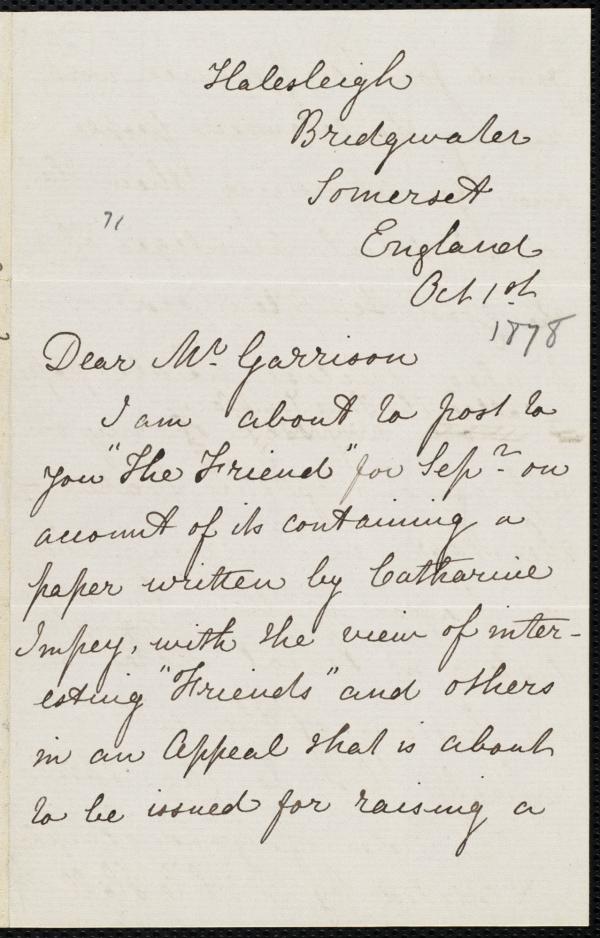 Halesleigh
Bridgwater
Somerset
England
Oct 1st
1878
71
Dear Mr. Garrison
I am about to post to
you "The Friend" for Sepr. on
account of its containing a
paper written by Catharine
Impey, with the view of inter-
esting "Friends" and others
in an Appeal that is about
to be issued for raising a